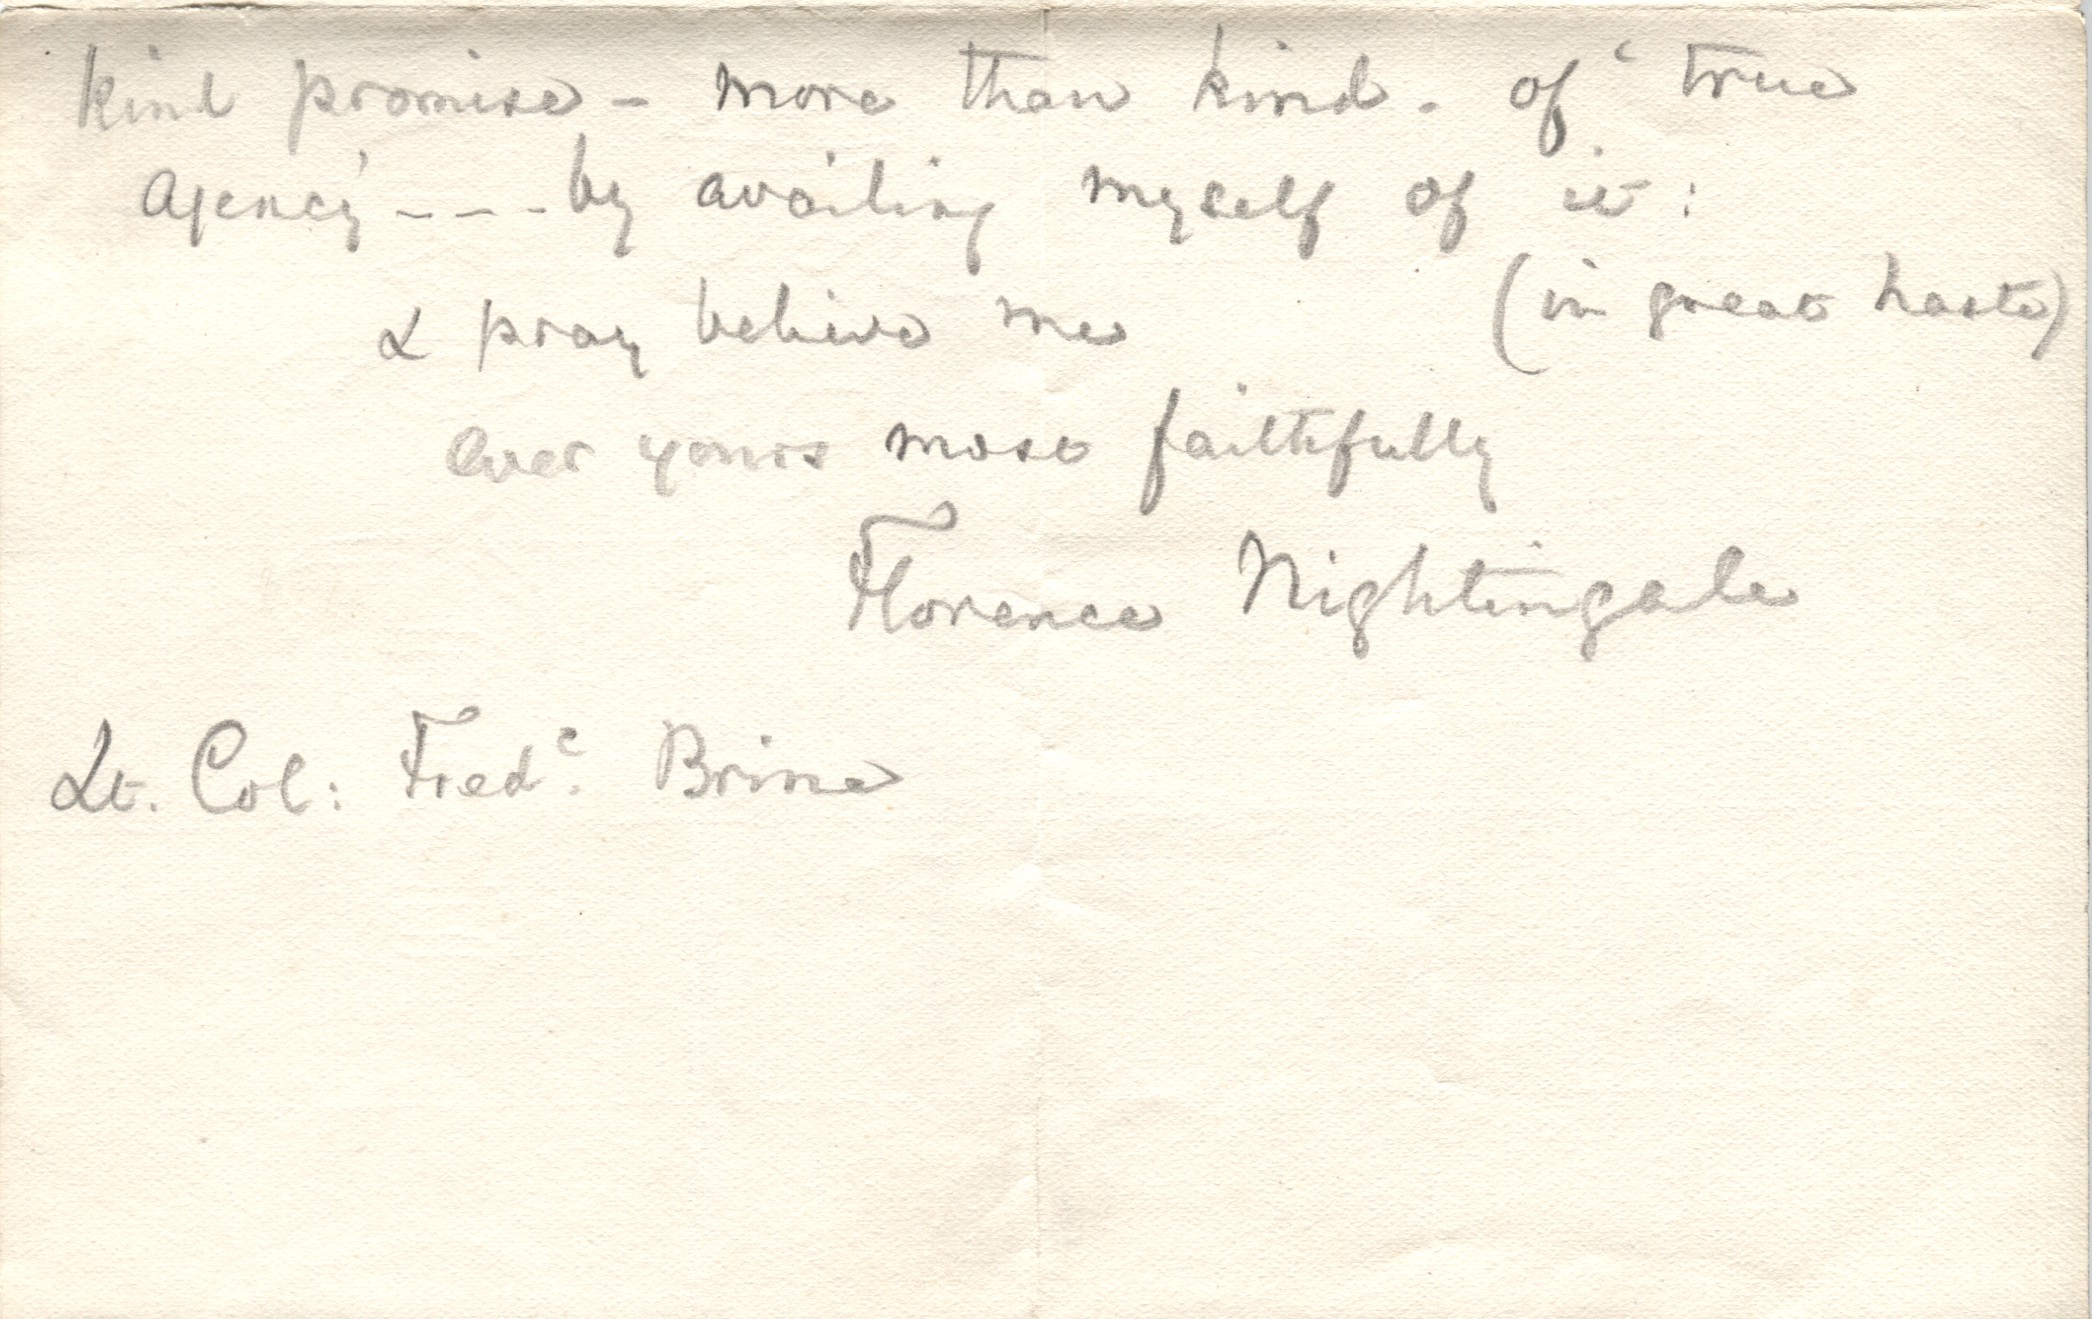 kind promise – more than kind – of 'true
agency' - - - by availing myself of it:
& pray believe me (in great haste)
ever yours most faithfully
Florence Nightingale
Lt. Col: Fred^c. Brine